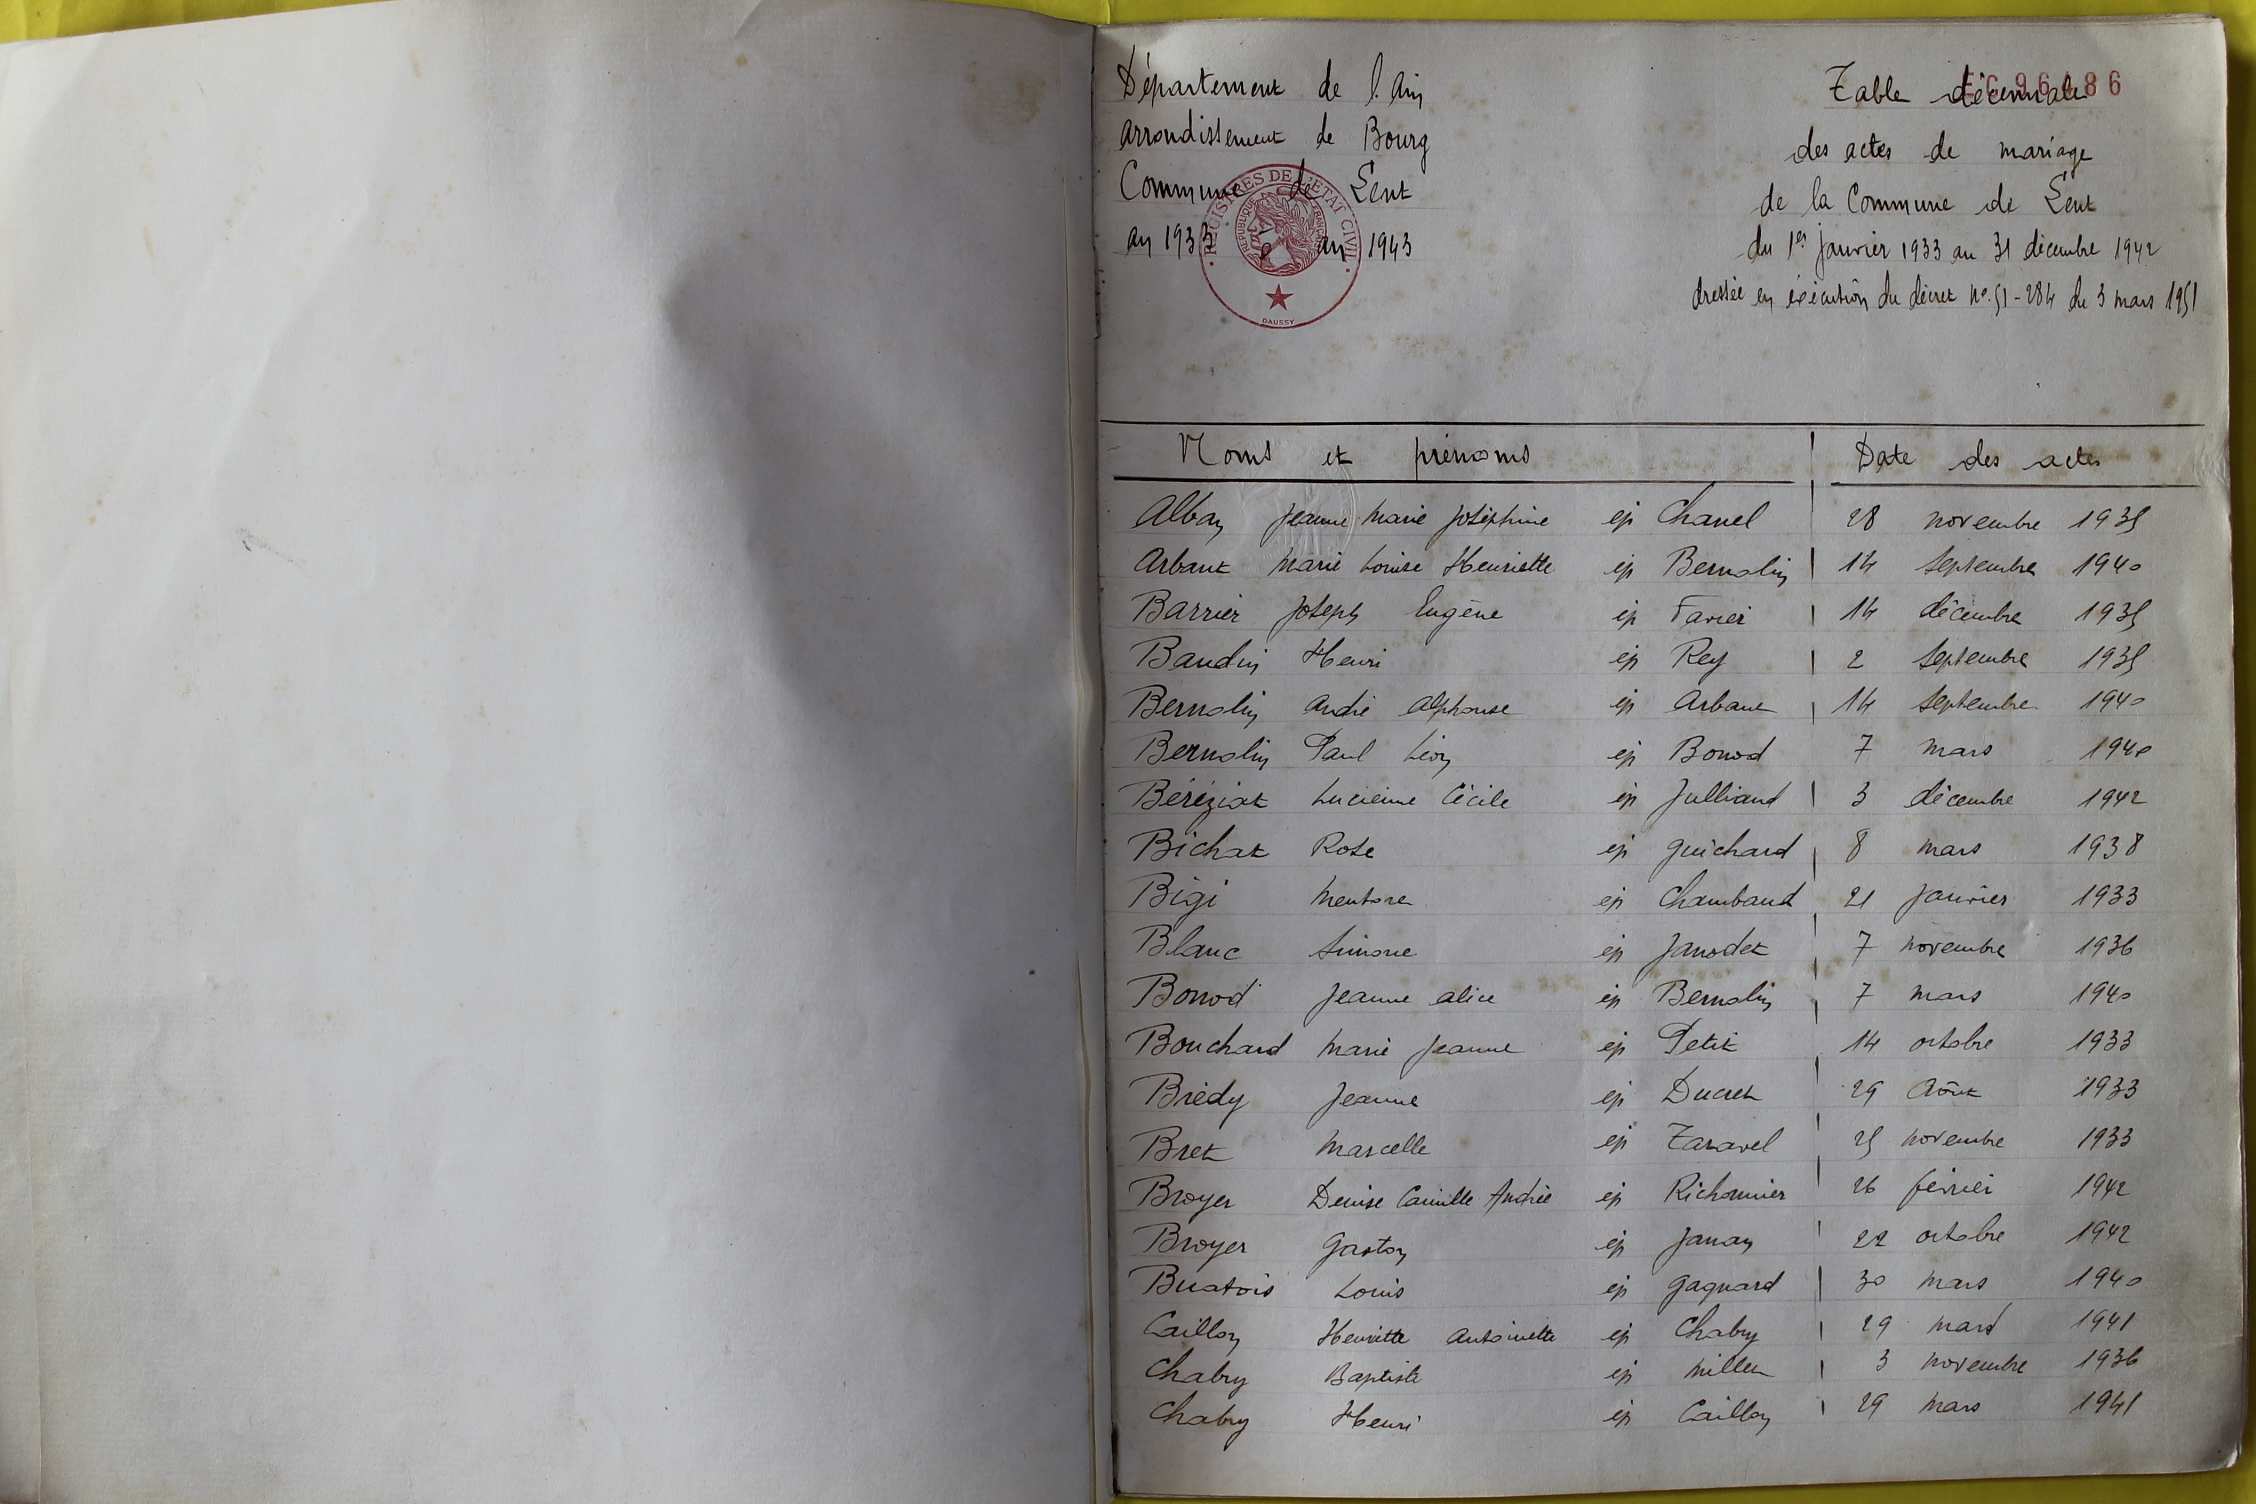 Département de l'Ain
arrondissement de Bourg
Commune de Lent
an 1933 an 1943
REGISTRES DE L'ETAT CIVIL
REPUBLIQUE FRANCAISE
DAUSSY
Table décennale
des actes de mariage
de la Commune de Lent
du 1er janvier 1933 au 31 décembre 1942
dressée en exécution du décret no. 51-284 du 3 mars 1951
Noms et prénoms Date des actes
Alban Jeanne Marie Joséphine ép Chanel 28 novembre 1935
Arbant Marie Louise Henriette ép Bernolin 14 septembre 1940
Barrier Joseph Eugène ép Favier 14 décembre 1935
Baudin Henri ép Rey 2 septembre 1935
Bernolin André Alphonse ép Arbant 14 septembre 1940
Bernolin Paul Léon ép Bonod 7 mars 1940
Béréziat Lucienne Cécile ép Julliand 3 décembre 1942
Bichat Rose ép Guichard 8 mars 1938
Bigi Mentore ép Chambaud 21 janvier 1933
Blanc Simone ép Janodet 7 novembre 1936
Bonod Jeanne Alice ép Bernolin 7 mars 1940
Bouchard Marie Jeanne ép Petit 14 octobre 1933
Brédy Jeanne ép Ducret 29 Août 1933
Bret Marcelle ép Taravel 25 novembre 1933
Broyer Denise Camille Andrée ép Richonnier 26 février 1942
Broyer Gaston ép Janan 22 octobre 1942
Buatois Louis ép Gagnard 30 mars 1940
Caillon Henriette Antoinette ép Chabry 29 mars 1941
Chabry Baptiste ép Millet 3 novembre 1936
Chabry Henri ép Caillon 29 mars 1941